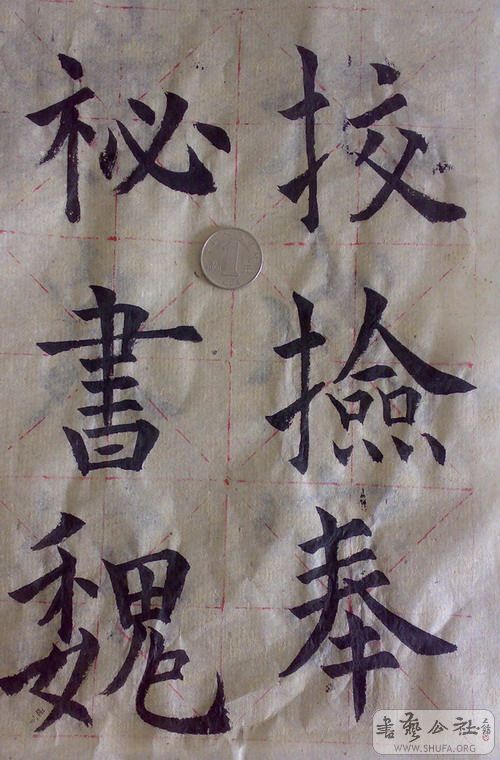 挍撿奉
祕書魏
1
書藝公社
WWW.SHUFA.ORG